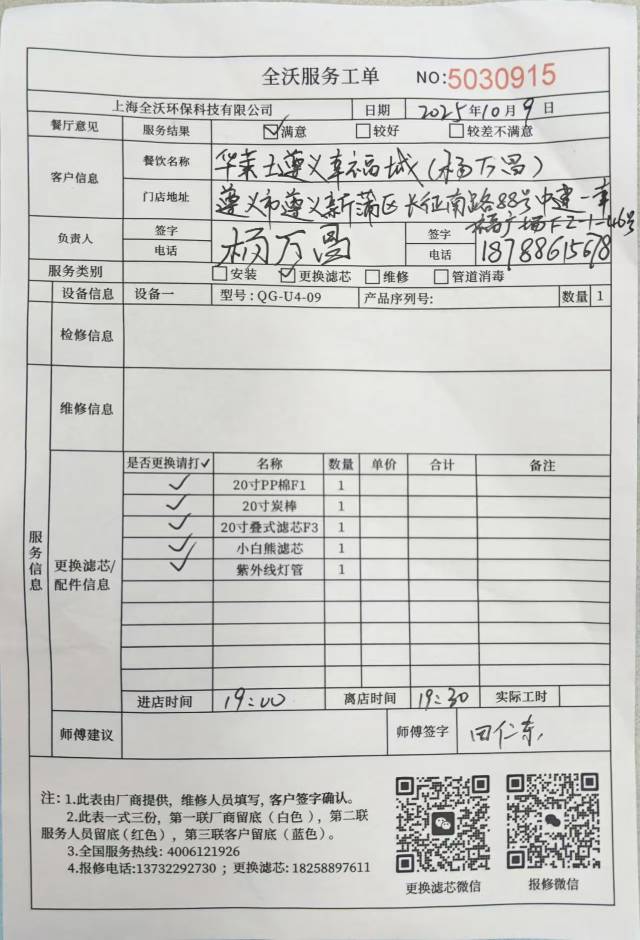 全沃服务工单 NO:5030915
上海全沃环保科技有限公司 日期 2025年10月9日
餐厅意见 服务结果 ☑满意 □较好 □较差不满意
客户信息 餐饮名称 华莱士遵义幸福城(杨万昌)
门店地址 遵义市遵义新蒲区长征南路88号中建一幸
福广场F2-1-46号
负责人 签字 杨万昌 签字
电话 电话 18788615678
服务类别 □安装 ☑更换滤芯 □维修 □管道消毒
服务信息
设备信息 设备一 型号:QG-U4-09 产品序列号: 数量 1
检修信息
维修信息
更换滤芯/配件信息
是否更换请打✓ 名称 数量 单价 合计 备注
✓ 20寸PP棉F1 1
✓ 20寸炭棒 1
✓ 20寸叠式滤芯F3 1
✓ 小白熊滤芯 1
✓ 紫外线灯管 1
进店时间 19:00 离店时间 19:30 实际工时
师傅建议 师傅签字 田仁东
注: 1.此表由厂商提供, 维修人员填写, 客户签字确认。
2.此表一式三份, 第一联厂商留底(白色), 第二联
服务人员留底(红色), 第三联客户留底(蓝色)。
3.全国服务热线: 4006121926
4.报修电话:13732292730 ; 更换滤芯: 18258897611
更换滤芯微信 报修微信